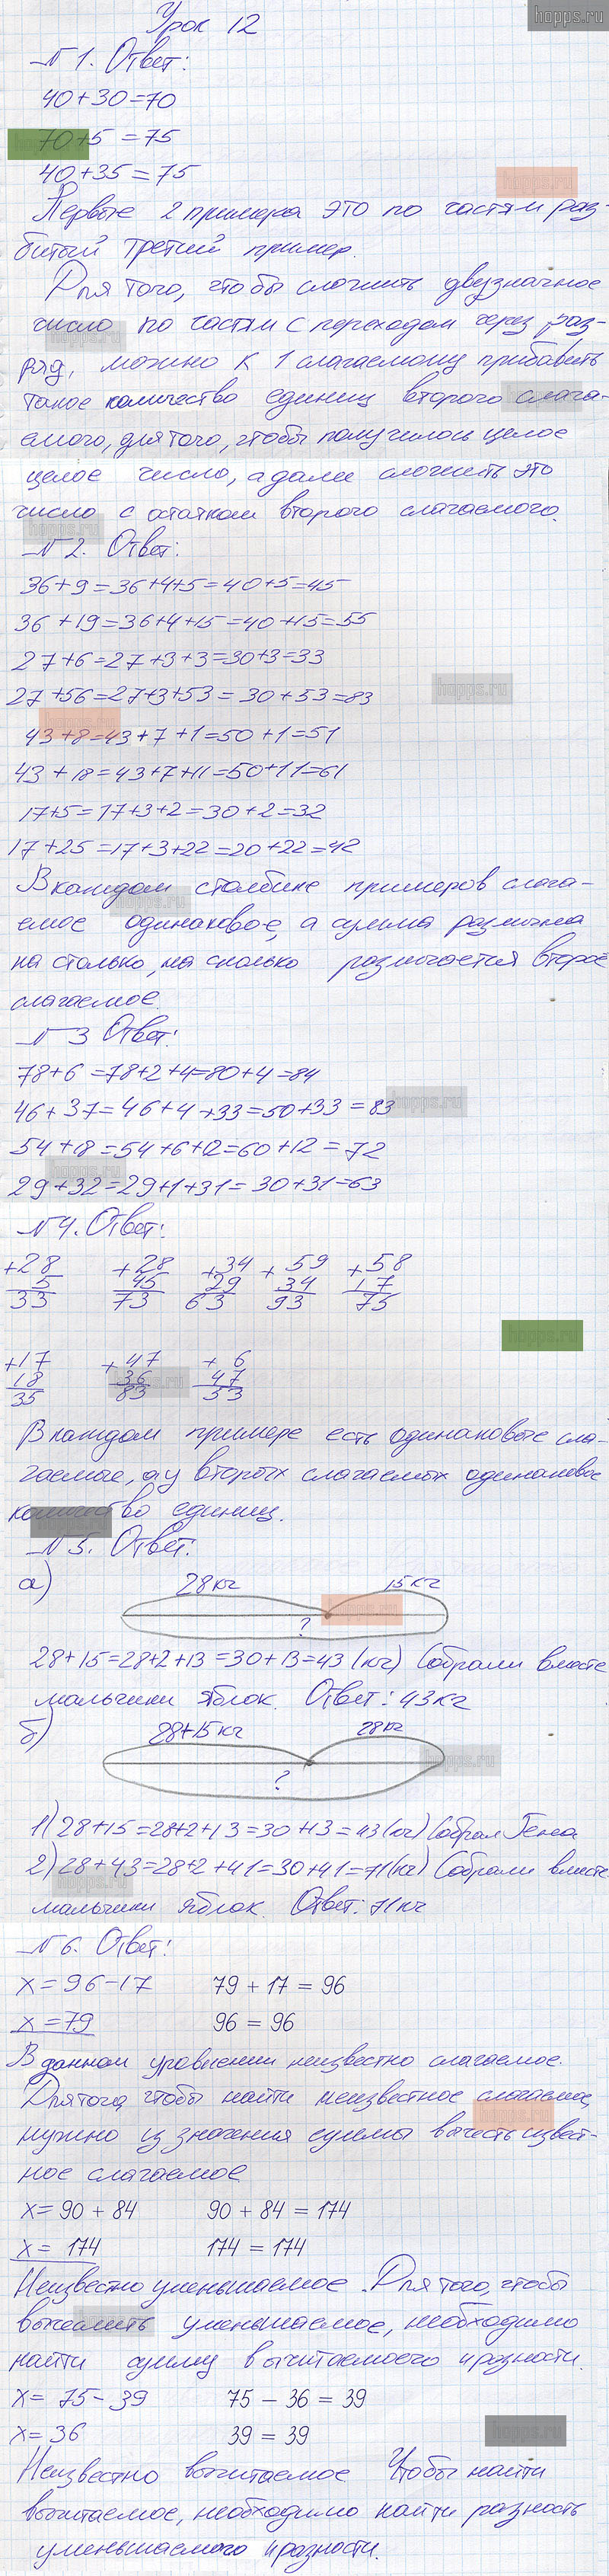 hopps.ru
Урок 12
№1. Ответ:
40+30=70
70+5=75
40+35=75
hopps.ru
Первые 2 примера это по частям раз-
битый третий пример.
Для того, чтобы сложить двузначное
число по частям с переходом через раз-
ряд, можно к 1 слагаемому прибавить
такое количество единиц второго слага-
емого, для того, чтобы получилось целое
целое число, а далее сложить это
число с остатком второго слагаемого.
№2. Ответ:
36+9=36+4+5=40+5=45
36+19=36+4+15=40+15=55
27+6=27+3+3=30+3=33
hopps.ru
27+56=27+3+53=30+53=83
43+8=43+7+1=50+1=51
43+18=43+7+11=50+11=61
17+5=17+3+2=30+2=32
17+25=17+3+22=20+22=42
В каждом столбике примеров слага-
емое одинаковое, а сумма различна
на столько, на сколько различается второе
слагаемое.
№3 Ответ:
78+6=78+2+4=80+4=84
46+37=46+4+33=50+33=83
hopps.ru
54+18=54+6+12=60+12=72
29+32=29+1+31=30+31=63
№4. Ответ:
+28 +28 +34 +59 +58
5 45 29 34 17
33 73 63 93 75
hopps.ru
+17 +47 +6
18 36 47
35 83 53
В каждом примере есть одинаковые сла-
гаемые, а у вторых слагаемых одинаковое
количество единиц.
№5. Ответ:
а) 28кг 15кг
?
28+15=28+2+13=30+13=43(кг) Собрали вместе
мальчики яблок. Ответ: 43кг
б) 28+15кг 28кг
hopps.ru
?
1) 28+15=28+2+13=30+13=43(кг) Собрал Гена
2) 28+43=28+2+41=30+41=71(кг) Собрали вместе
мальчики яблок. Ответ: 71кг
№6. Ответ:
x=96-17 79+17=96
x=79 96=96
В данном уравнении неизвестно слагаемое.
Для того, чтобы найти неизвестное слагаемое,
нужно из значения суммы вычесть извест-
ное слагаемое
x=90+84 90+84=174
x=174 174=174
Неизвестно уменьшаемое. Для того, чтобы
вычислить уменьшаемое, необходимо
найти сумму вычитаемого и разности.
x=75-39 75-36=39
x=36 39=39
hopps.ru
Неизвестно вычитаемое Чтобы найти
вычитаемое, необходимо найти разность
уменьшаемого и разности.